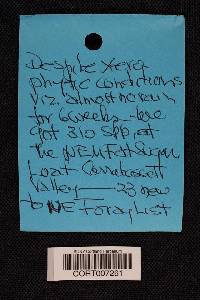 Despite xero
phytic conditions
viz. almost no rain
for 6 weeks - we
got 310 SPP. at
the NEMF at Sugar
Loaf Carrabassett
Valley — 23 new
to NE Foray List
COFT007261